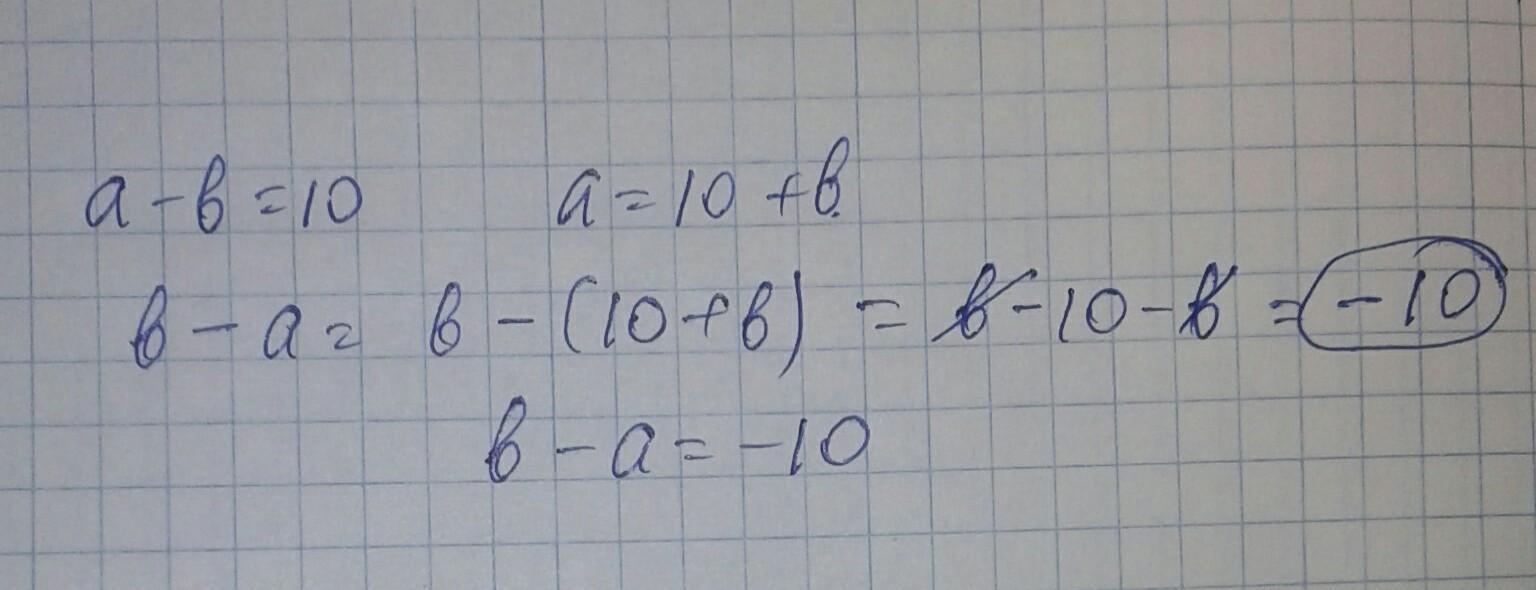 a - b = 10 a = 10 + b
b - a = b - (10 + b) = b - 10 - b = -10
b - a = -10